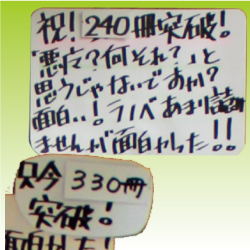 祝！240冊突破！
「悪疫？何それ？」と
思うじゃないですか？
面白い！ラノベあまり読
ませんが面白かった！！
只今330冊
突破！
面白かった！